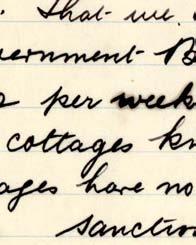 . That we
vernment B
per week
cottages kn
ages have no
sanction